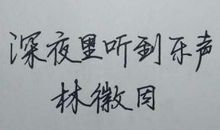 深夜里听到乐声
林徽因